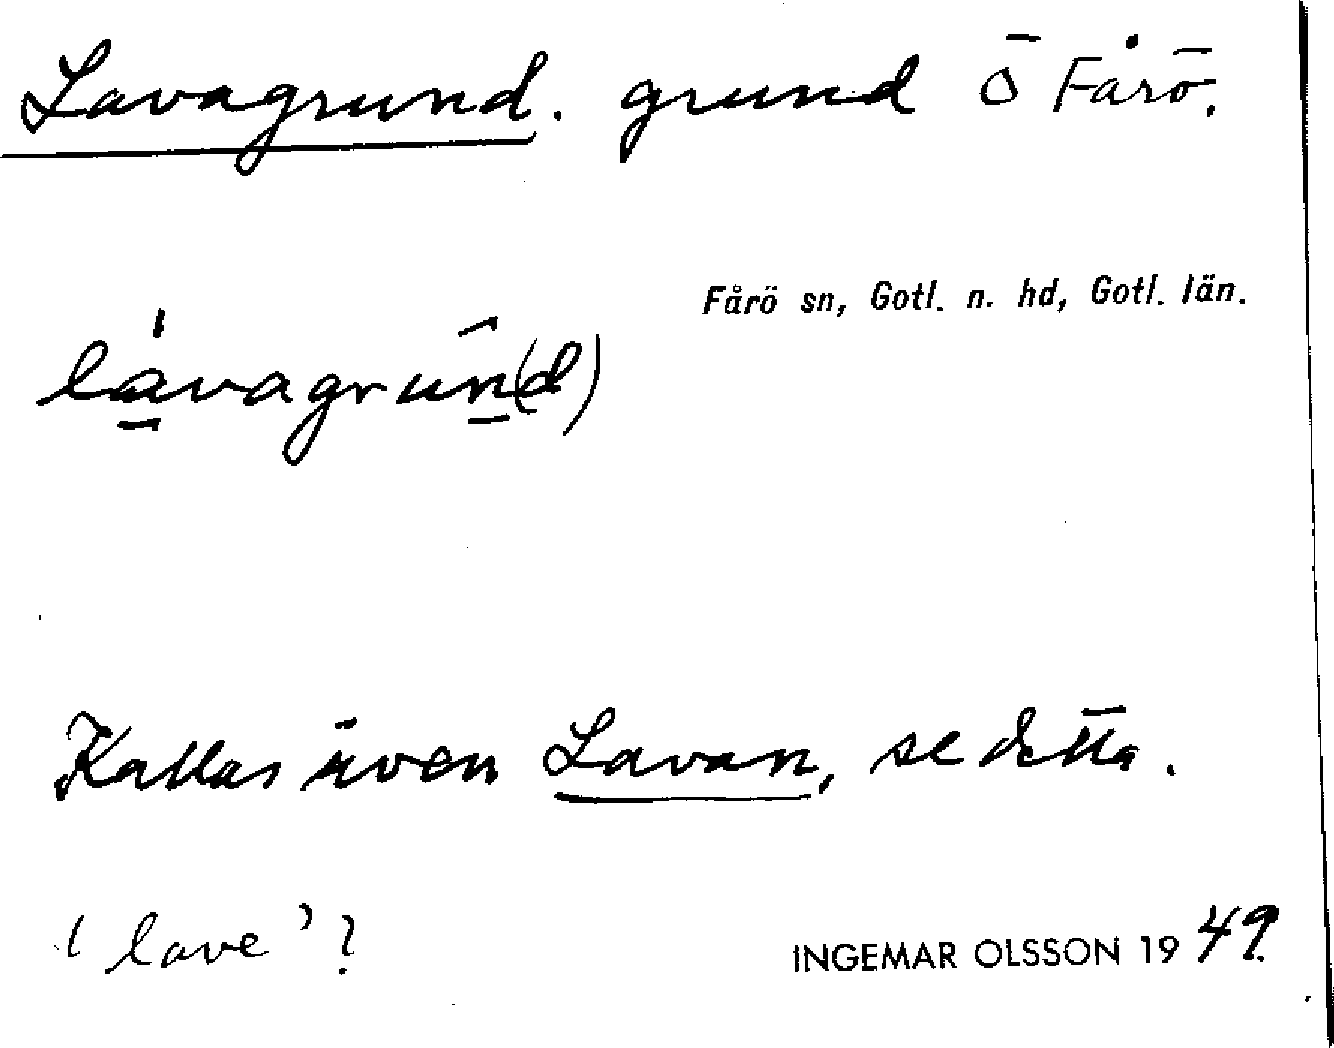 Lavagrund. grund ö Fårö.
Fårö sn, Gotl. n. hd, Gotl. län.
lávagrun(d)
Kallas även Lavan, se detta.
'lave'?
INGEMAR OLSSON 1949.